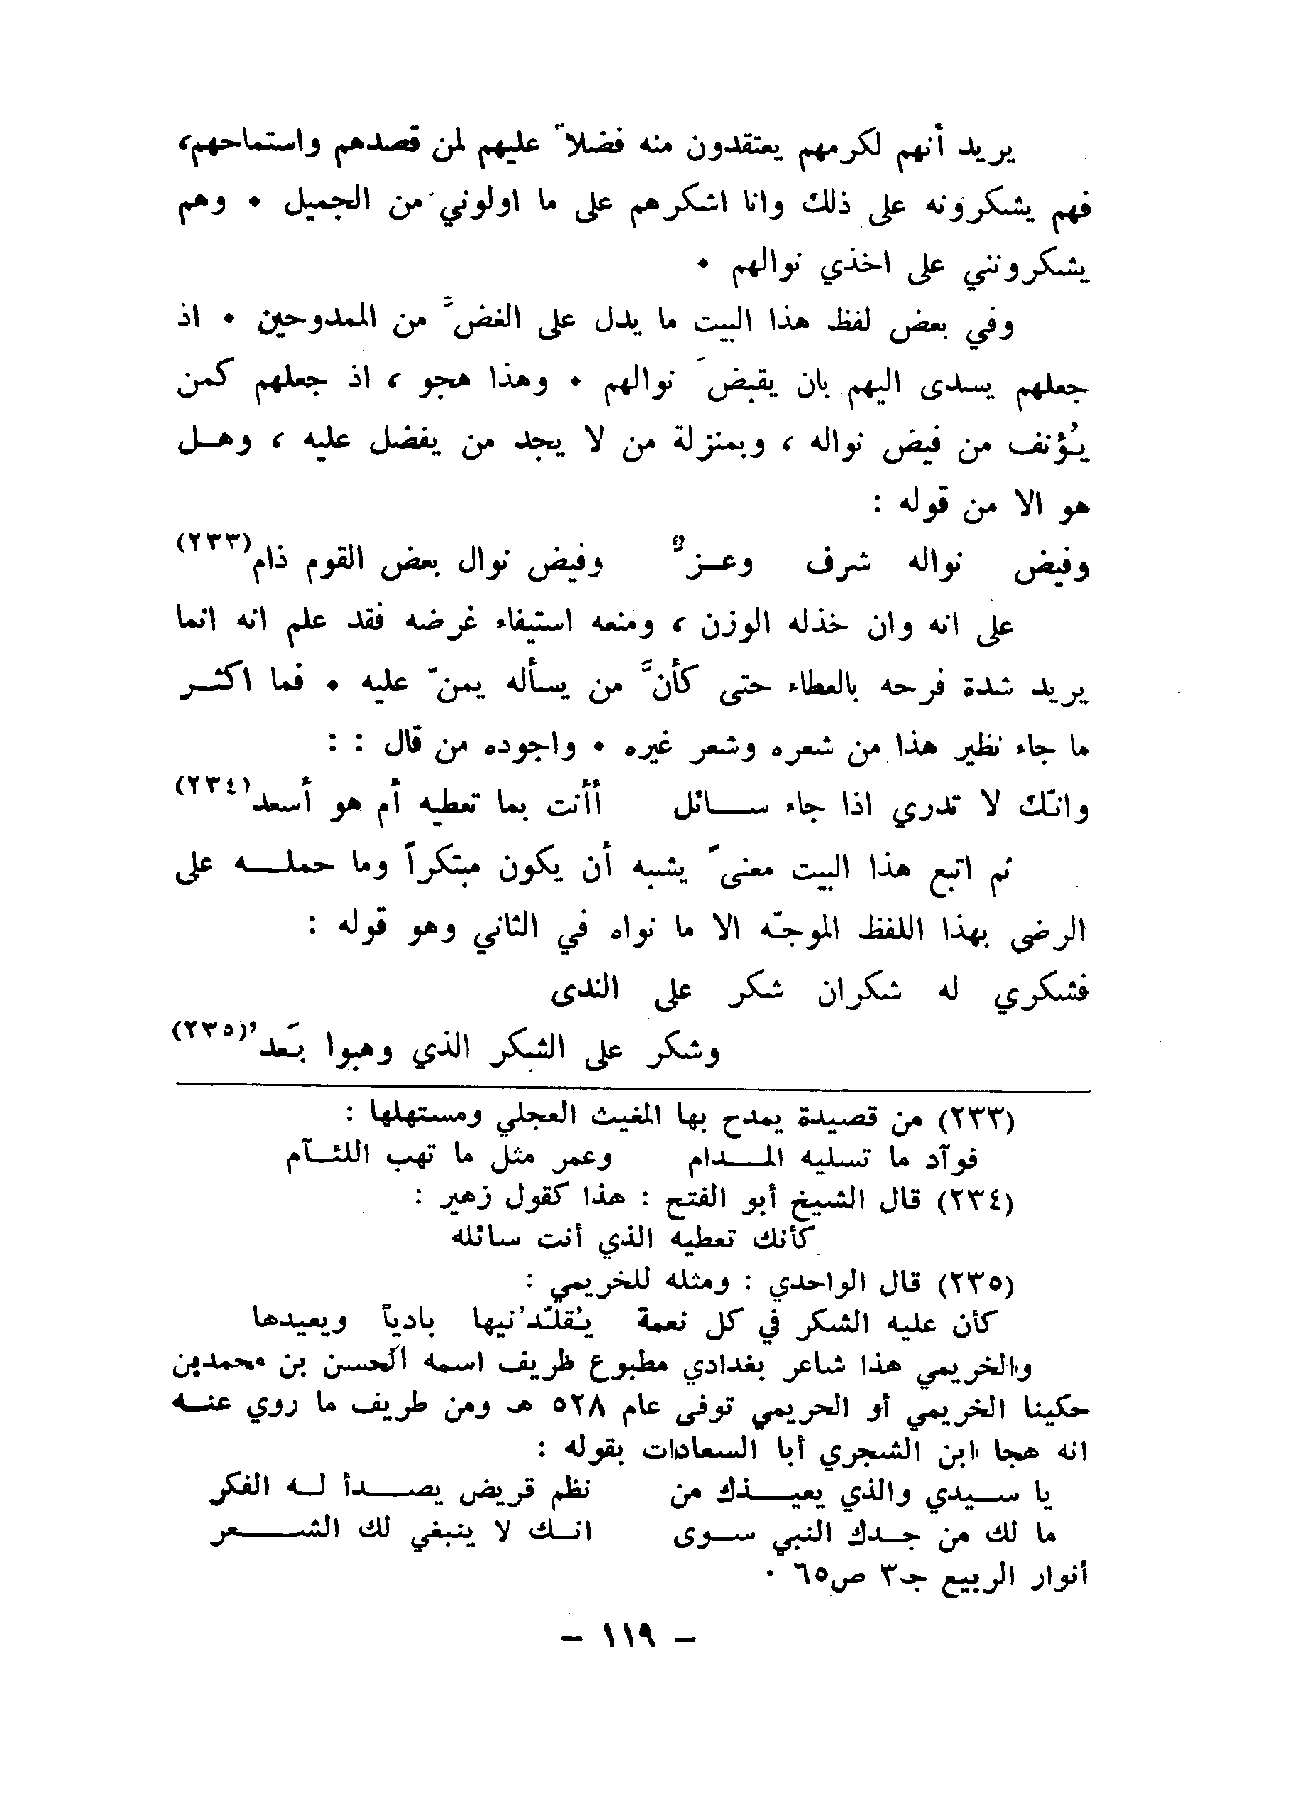 يريد أنهم لكرمهم يعتقدون منه فضلاً عليهم لمن قصدهم واستماحهم،
فهم يشكرونه على ذلك وانا اشكرهم على ما اولوني من الجميل ٠ وهم
يشكرونني على اخذي نوالهم ٠
وفي بعض لفظ هذا البيت ما يدل على الغضِّ من الممدوحين ٠ اذ
جعلهم يسدى اليهم بان يقبضَ نوالهم ٠ وهذا هجو ، اذ جعلهم كمن
يُؤنف من فيض نواله ، وبمنزلة من لا يجد من يفضل عليه ، وهـل
هو الا من قوله :
وفيض نواله شرف وعـزٌ وفيض نوال بعض القوم ذام(٢٣٣)
على انه وان خذله الوزن ، ومنعه استيفاء غرضه فقد علم انه انما
يريد شدة فرحه بالعطاء حتى كأنَّ من يسأله يمنّ عليه ٠ فما اكثـر
ما جاء نظير هذا من شعره وشعر غيره ٠ واجوده من قال : :
وانّك لا تدري اذا جاء ســائل أأنت بما تعطيه أم هو أسعد(٢٣٤)
ثم اتبع هذا البيت معنىً يشبه أن يكون مبتكراً وما حملــه على
الرضى بهذا اللفظ الموجّه الا ما نواه في الثاني وهو قوله :
فشكري له شكران شكر على الندى
وشكر على الشكر الذي وهبوا بَعد'(٢٣٥)
(٢٣٣) من قصيدة يمدح بها المغيث العجلي ومستهلها :
فوآد ما تسليه المــدام وعمر مثل ما تهب اللئــآم
(٢٣٤) قال الشيخ أبو الفتح : هذا كقول زهير :
كأنك تعطيه الذي أنت سائله
(٢٣٥) قال الواحدي : ومثله للخريمي :
كأن عليه الشكر في كل نعمة يُقلّد'نيها بادياً ويعيدها
والخريمي هذا شاعر بغدادي مطبوع ظريف اسمه الحسن بن محمدبن
حكينا الخريمي أو الحريمي توفى عام ٥٢٨ هـ ومن طريف ما روي عنـه
انه هجا ابن الشجري أبا السعادات بقوله :
يا ســيدي والذي يعيــذك من نظم قريض يصــدأ لـه الفكر
ما لك من جـدك النبي سـوى انـك لا ينبغي لك الشــعر
أنوار الربيع جـ٣ ص٦٥ ٠
– ١١٩ –